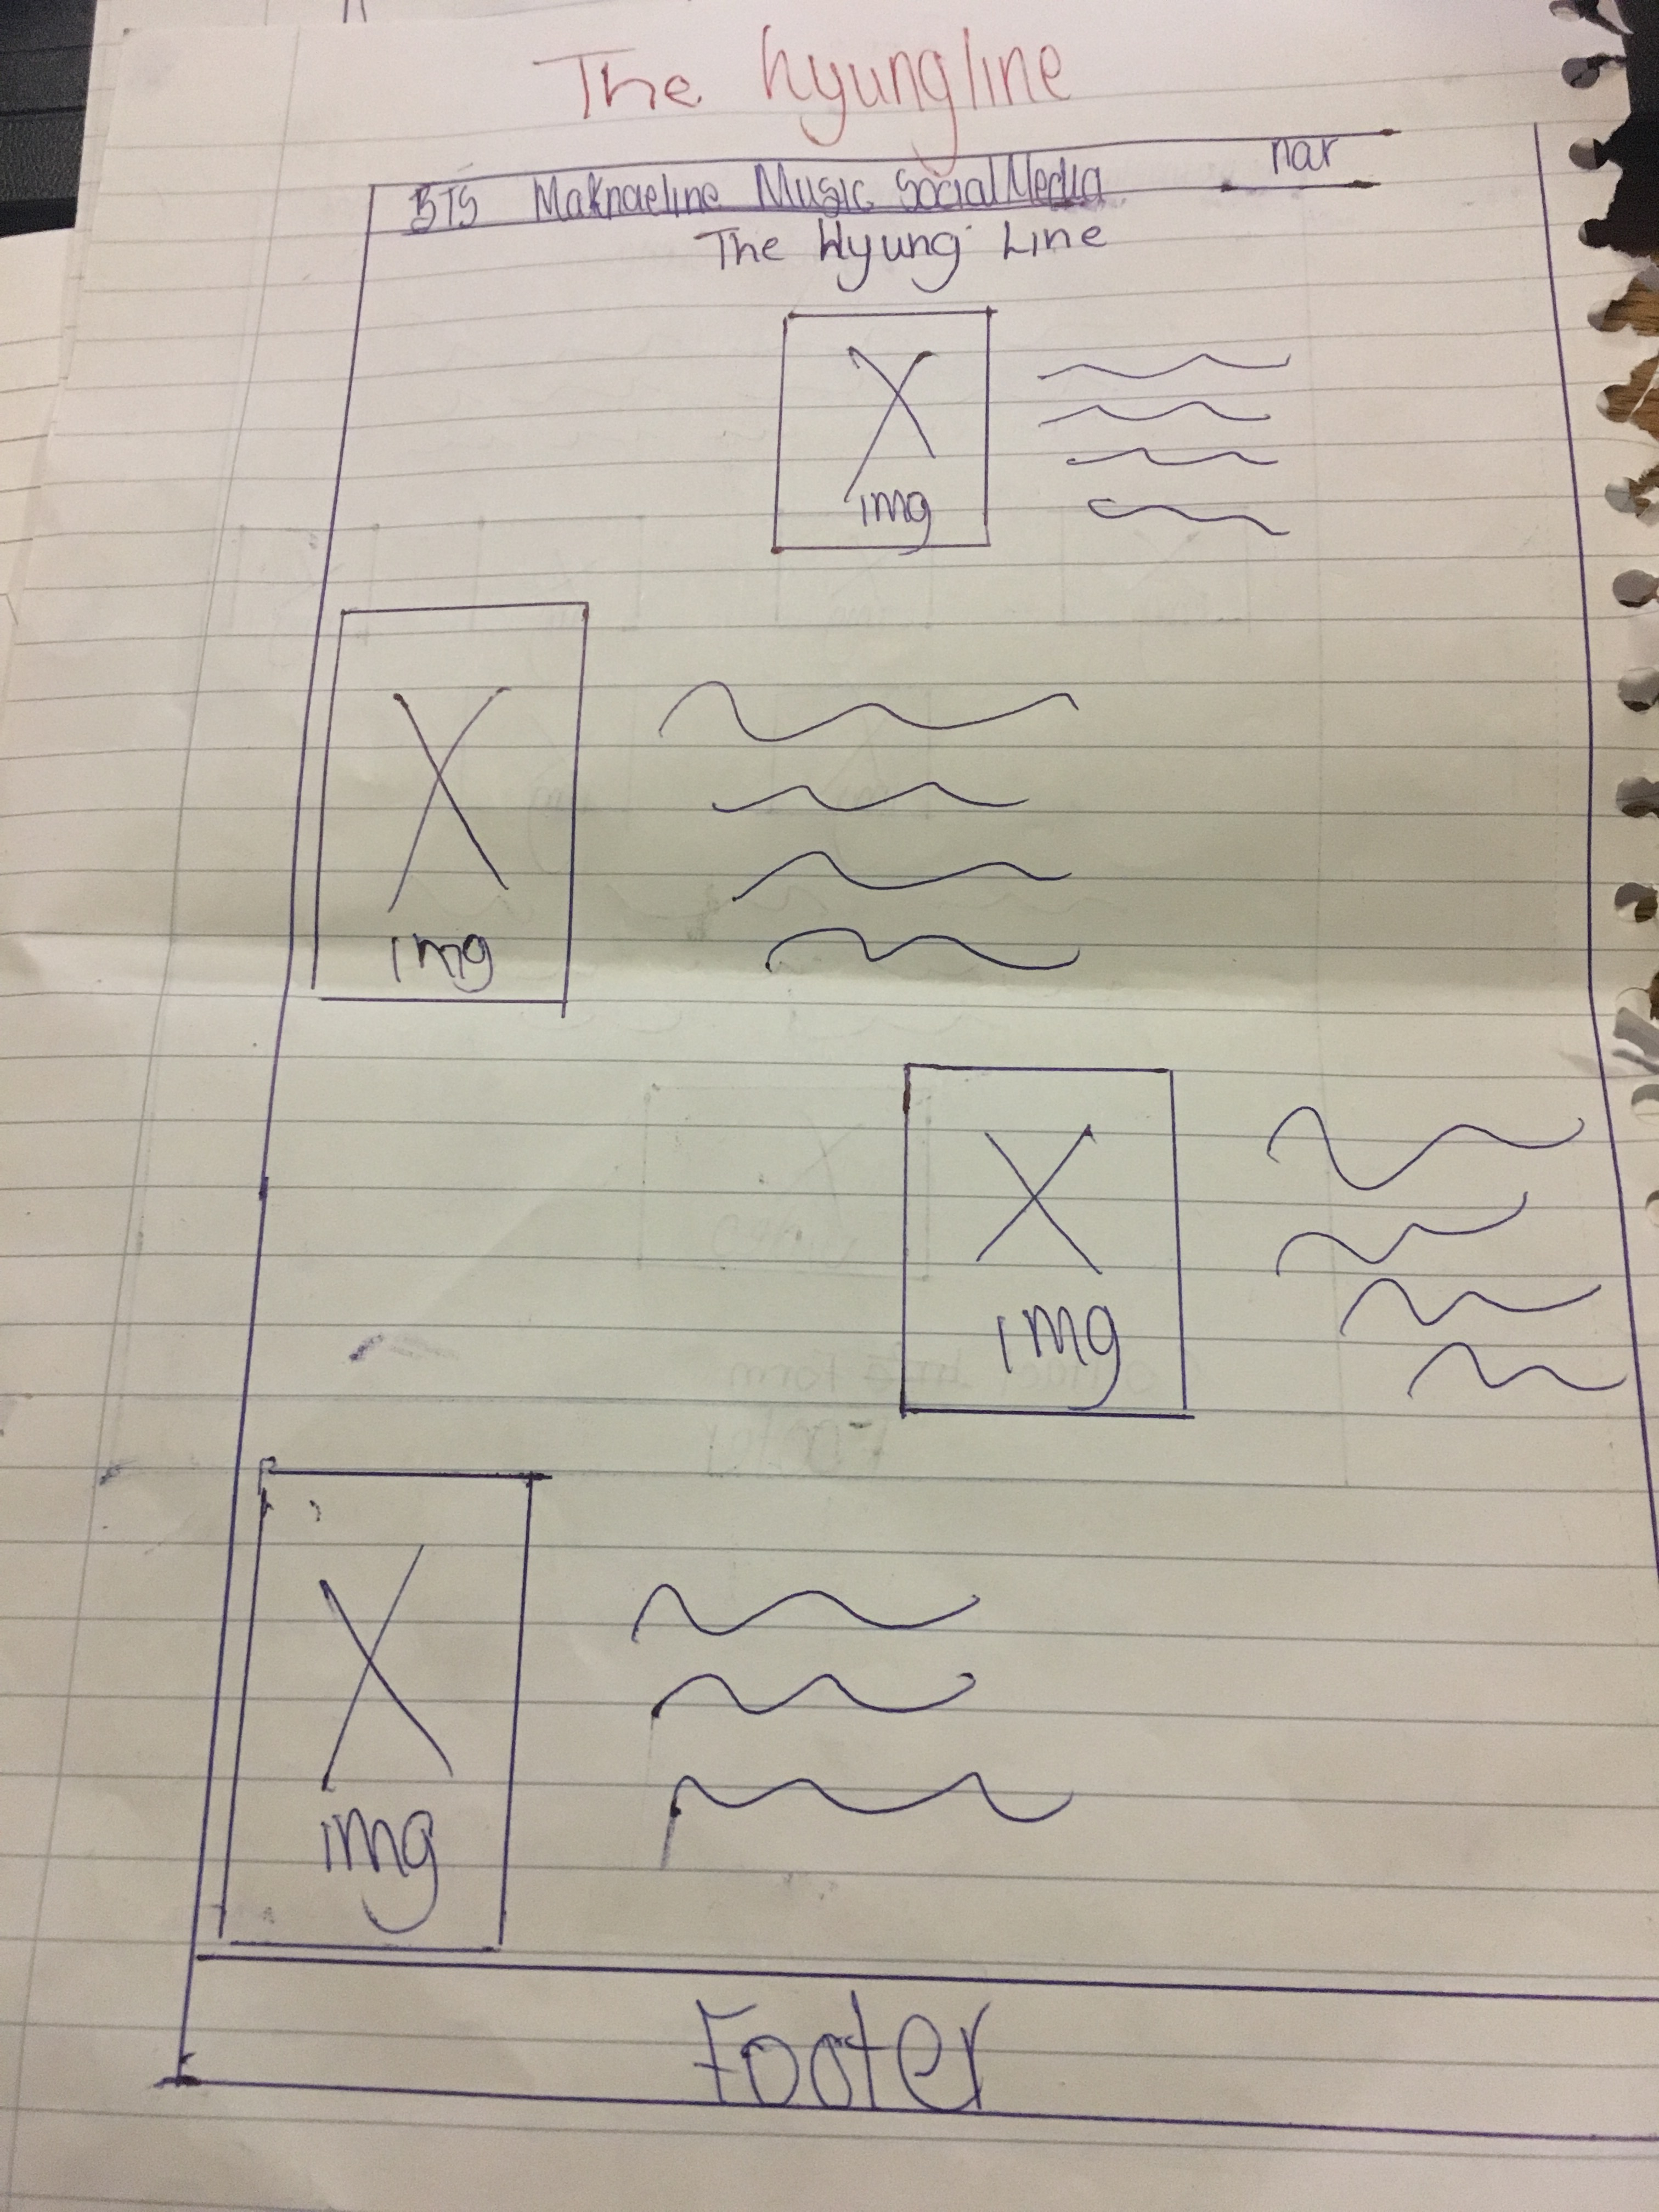 The hyungline
BTS Maknaeline Music Social Media nav
The Hyung Line
img
img
img
img
Footer